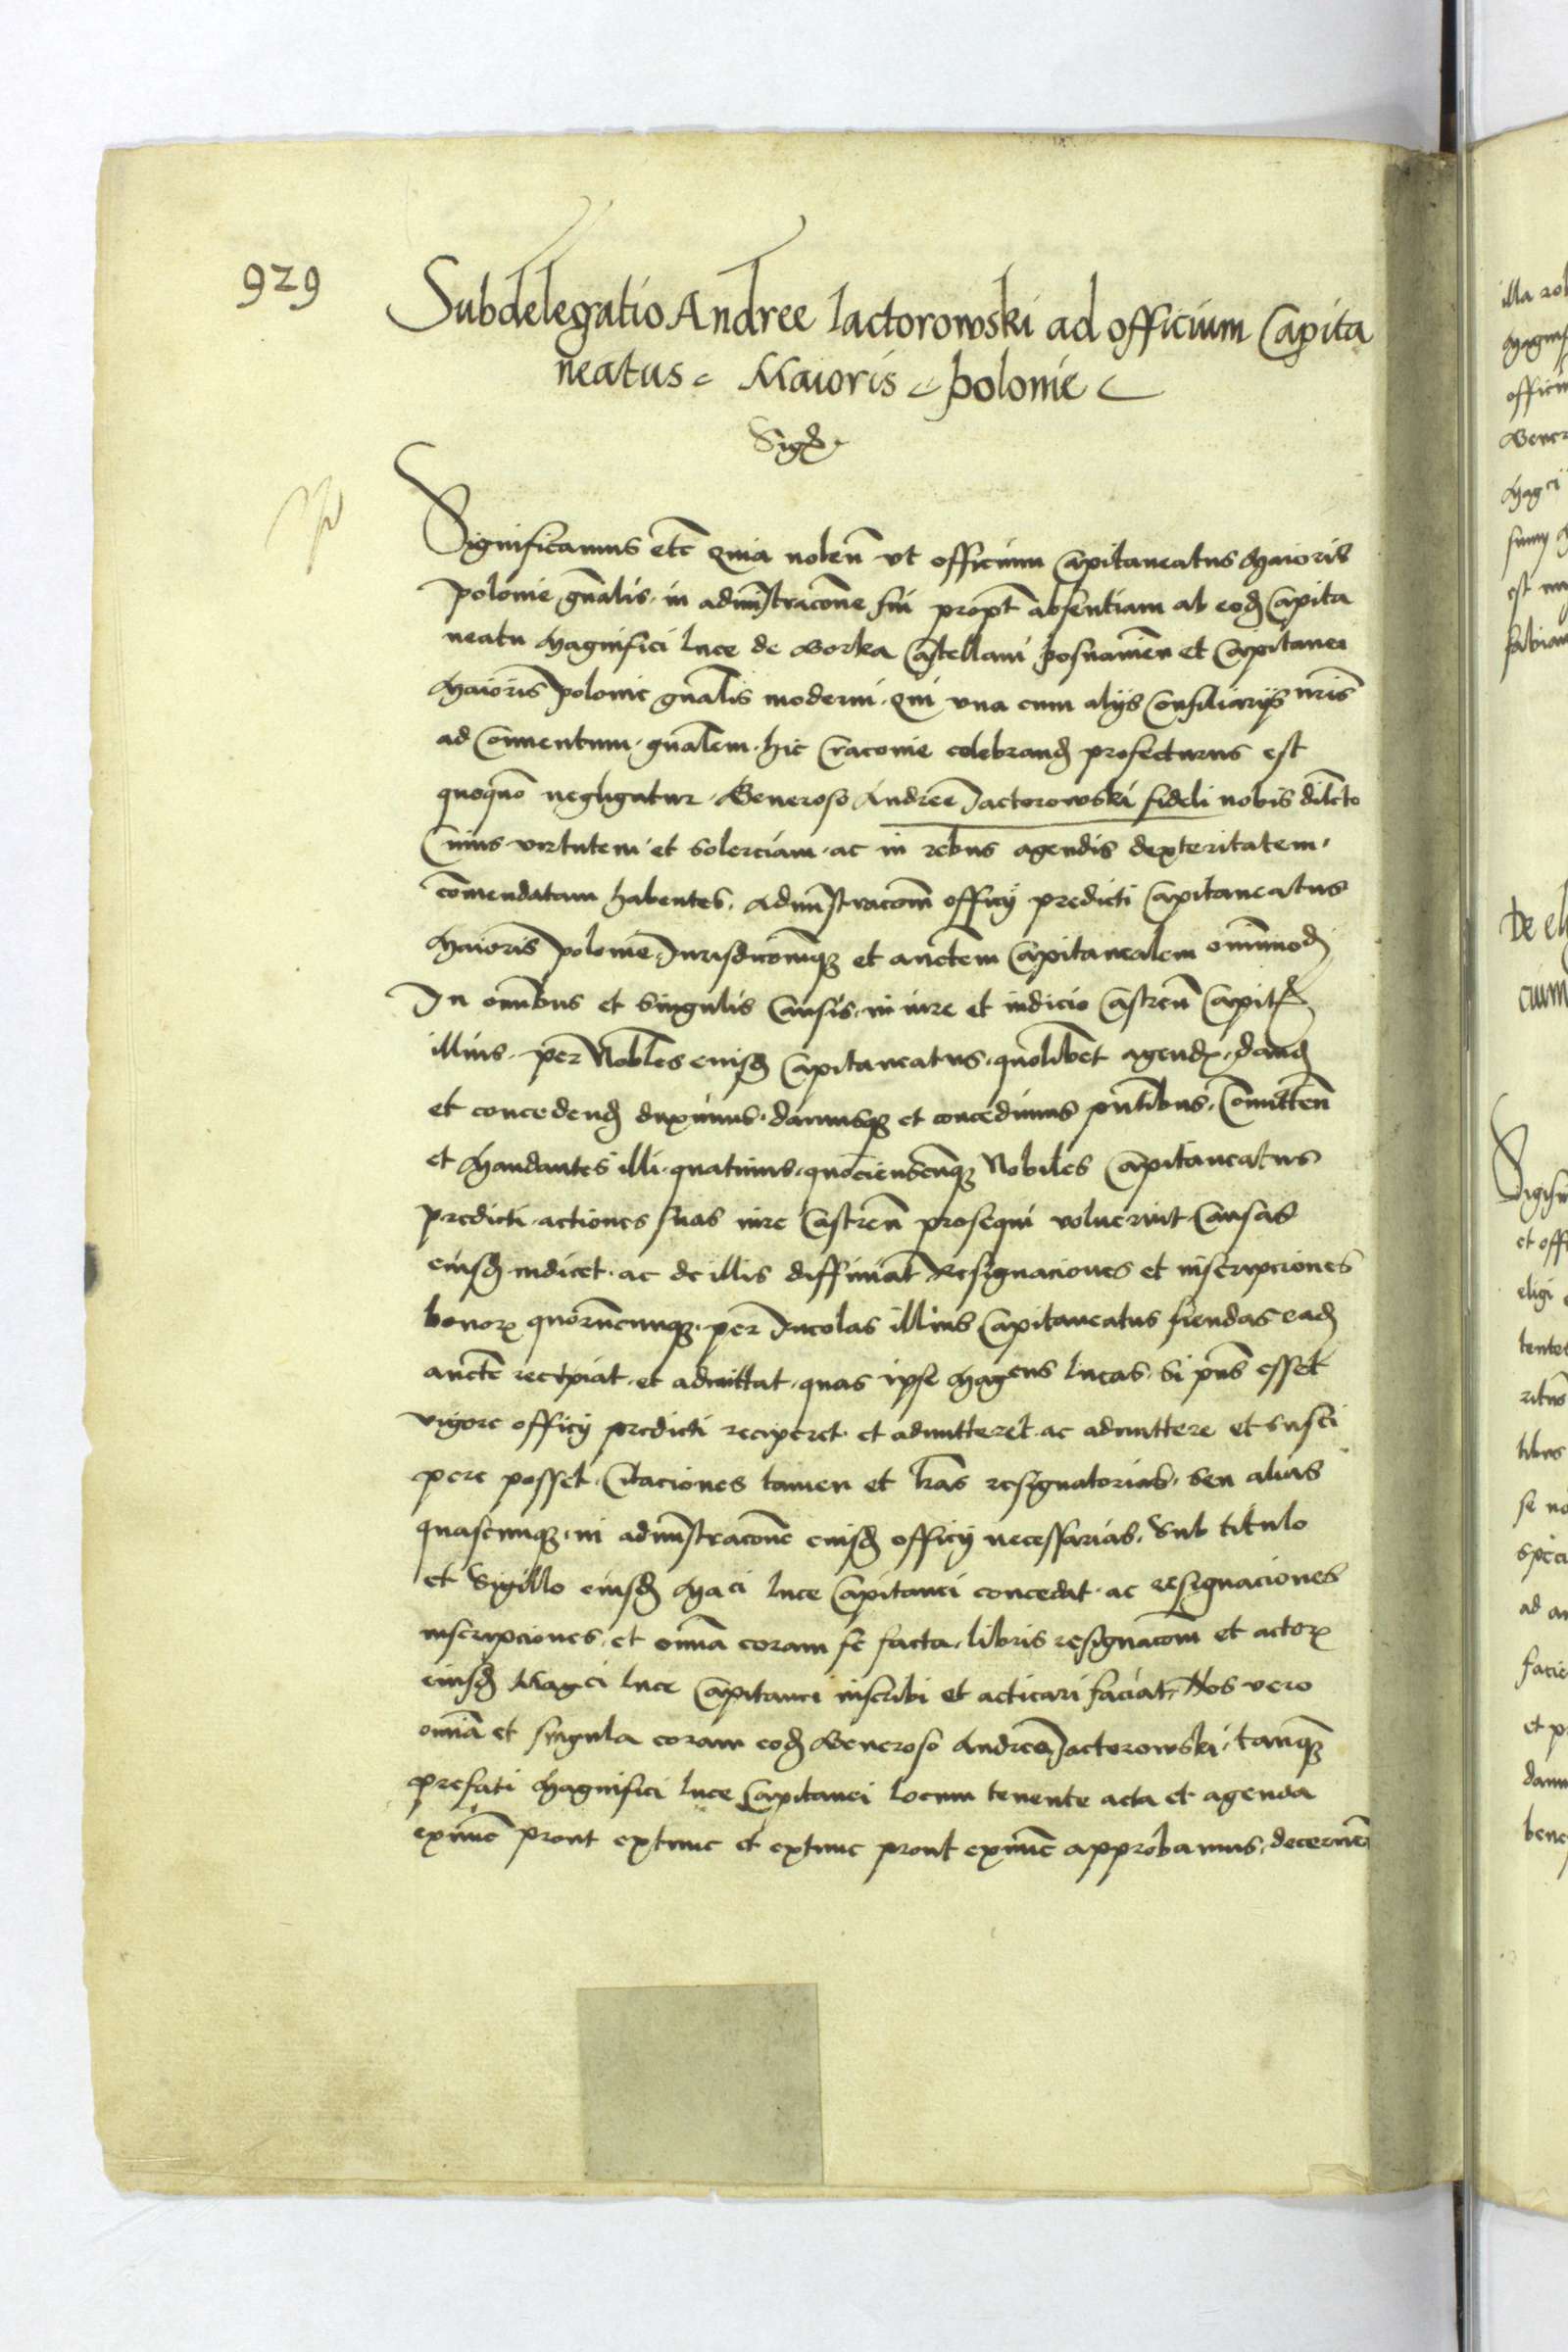 929
Subdelegatio Andree Iactorowski ad officium Capita
neatus Maioris polonie
Sigd
Significamus etc Quia nolen vt officium Capitaneatus Maioris
polonie gnalis in admstracone sui propt absentiam ab eod Capita
neatu Magnifici luce de Gorka Castellani posnanien et Capitanei
Maioris polonie gnalis moderni qui vna cum alijs Consiliarijs nris
ad Conuentum gnalem hic Cracouie celebrand profecturus est
quoquo negligatur Generoso Andree Iactorowski fideli nobis dilcto
Cuius virtutem et solerciam ac in rebus agendis dexteritatem
comendatam habentes, admstracom officij predicti Capitaneatus
Maioris polonie Iurisdiconemq et auctem Capitanealem omnimod
In omnibus et singulis Causis in iure et iudicio Castren Capit
illius per Nobles eiusd Capitaneatus quolibet agend, dand
et concedend duximus damusq et concedimus pntibus, Comitten
et Mandantes illi quatinus quocienscunq Nobiles Capitaneatus
predicti actiones suas iure Castren prosequi voluerint Causas
eiusd iudicet ac de illis diffiniat Resignaciones et inscripciones
bonor quorumcunq per Incolas illius Capitaneatus fiendas ead
aucte recipiat et admittat quas ipse Magcus lucas si pns esset
vigore officij predicti reciperet et admitteret ac admittere et susci
pere posset Citaciones tamen et lras resignatorias seu alias
quascunq in admstracone eiusd officij necessarias, Sub titulo
et Sigillo eiusd Maci luce Capitanei concedat ac resignaciones
inscripciones et omnia coram se facta libris resignacom et actor
eiusd Magci luce Capitanei inscribi et acticari faciat, Nos vero
omnia et singula coram eod Generoso Andrea Iactorowski, tanq
prefati Magnifici luce Capitanei locum tenente acta et agenda
exnunc prout extunc et extunc prout exnunc approbamus, decernen